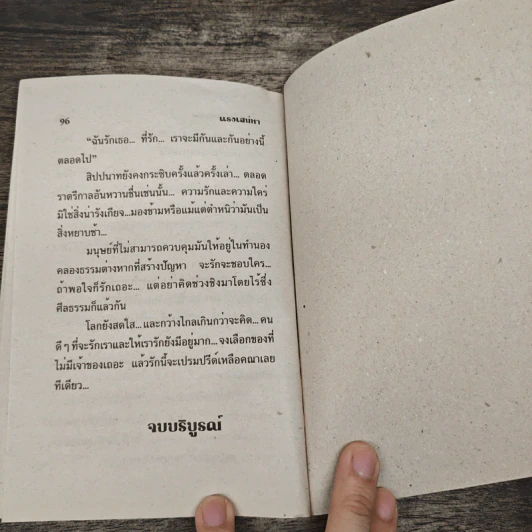 96 แรงเสน่หา
“ฉันรักเธอ... ที่รัก... เราจะมีกันและกันอย่างนี้
ตลอดไป”
สิปปนาทยังคงกระซิบครั้งแล้วครั้งเล่า... ตลอด
ราตรีกาลอันหวานชื่นเช่นนั้น... ความรักและความใคร่
มิใช่สิ่งน่ารังเกียจ...มองข้ามหรือแม้แต่ตำหนิว่ามันเป็น
สิ่งหยาบช้า...
มนุษย์ที่ไม่สามารถควบคุมมันให้อยู่ในทำนอง
คลองธรรมต่างหากที่สร้างปัญหา จะรักจะชอบใคร...
ถ้าพอใจก็รักเถอะ... แต่อย่าคิดช่วงชิงมาโดยไร้ซึ่ง
ศีลธรรมก็แล้วกัน
โลกยังสดใส... และกว้างไกลเกินกว่าจะคิด... คน
ดีๆ ที่จะรักเราและให้เรารักยังมีอยู่มาก... จงเลือกของที่
ไม่มีเจ้าของเถอะ แล้วรักนี้จะเปรมปรีด์เหลือคณาเลย
ทีเดียว...
จบบริบูรณ์